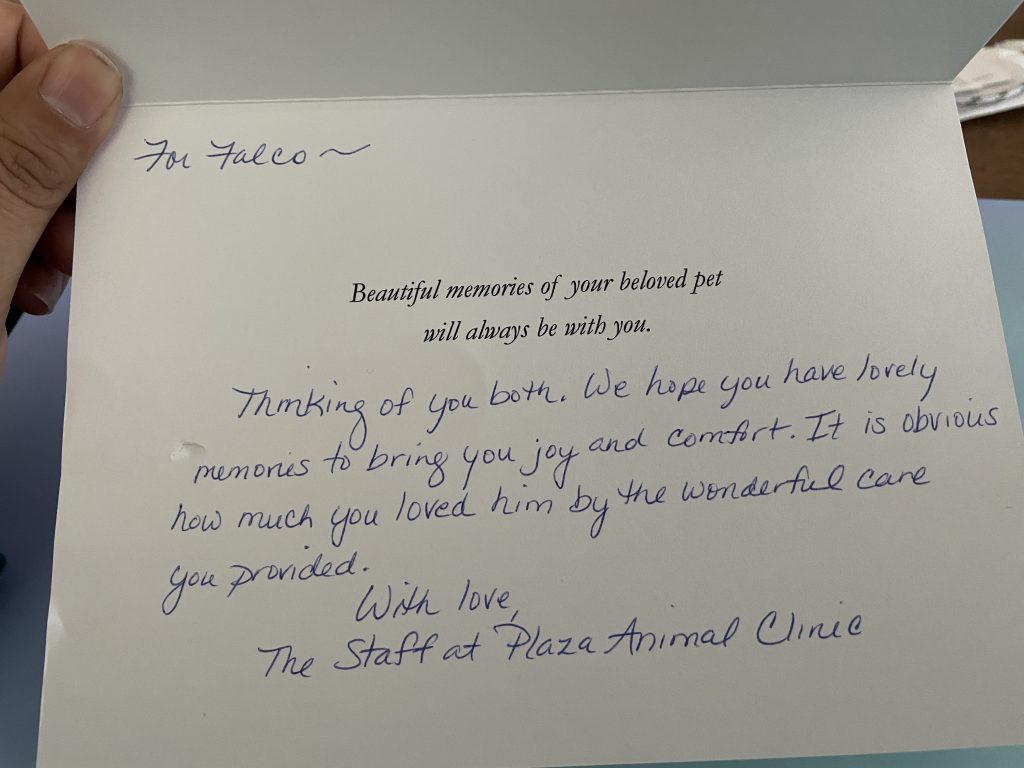 For Falco ~
Beautiful memories of your beloved pet
will always be with you.
Thinking of you both. We hope you have lovely
memories to bring you joy and comfort. It is obvious
how much you loved him by the wonderful care
you provided.
With love,
The Staff at Plaza Animal Clinic